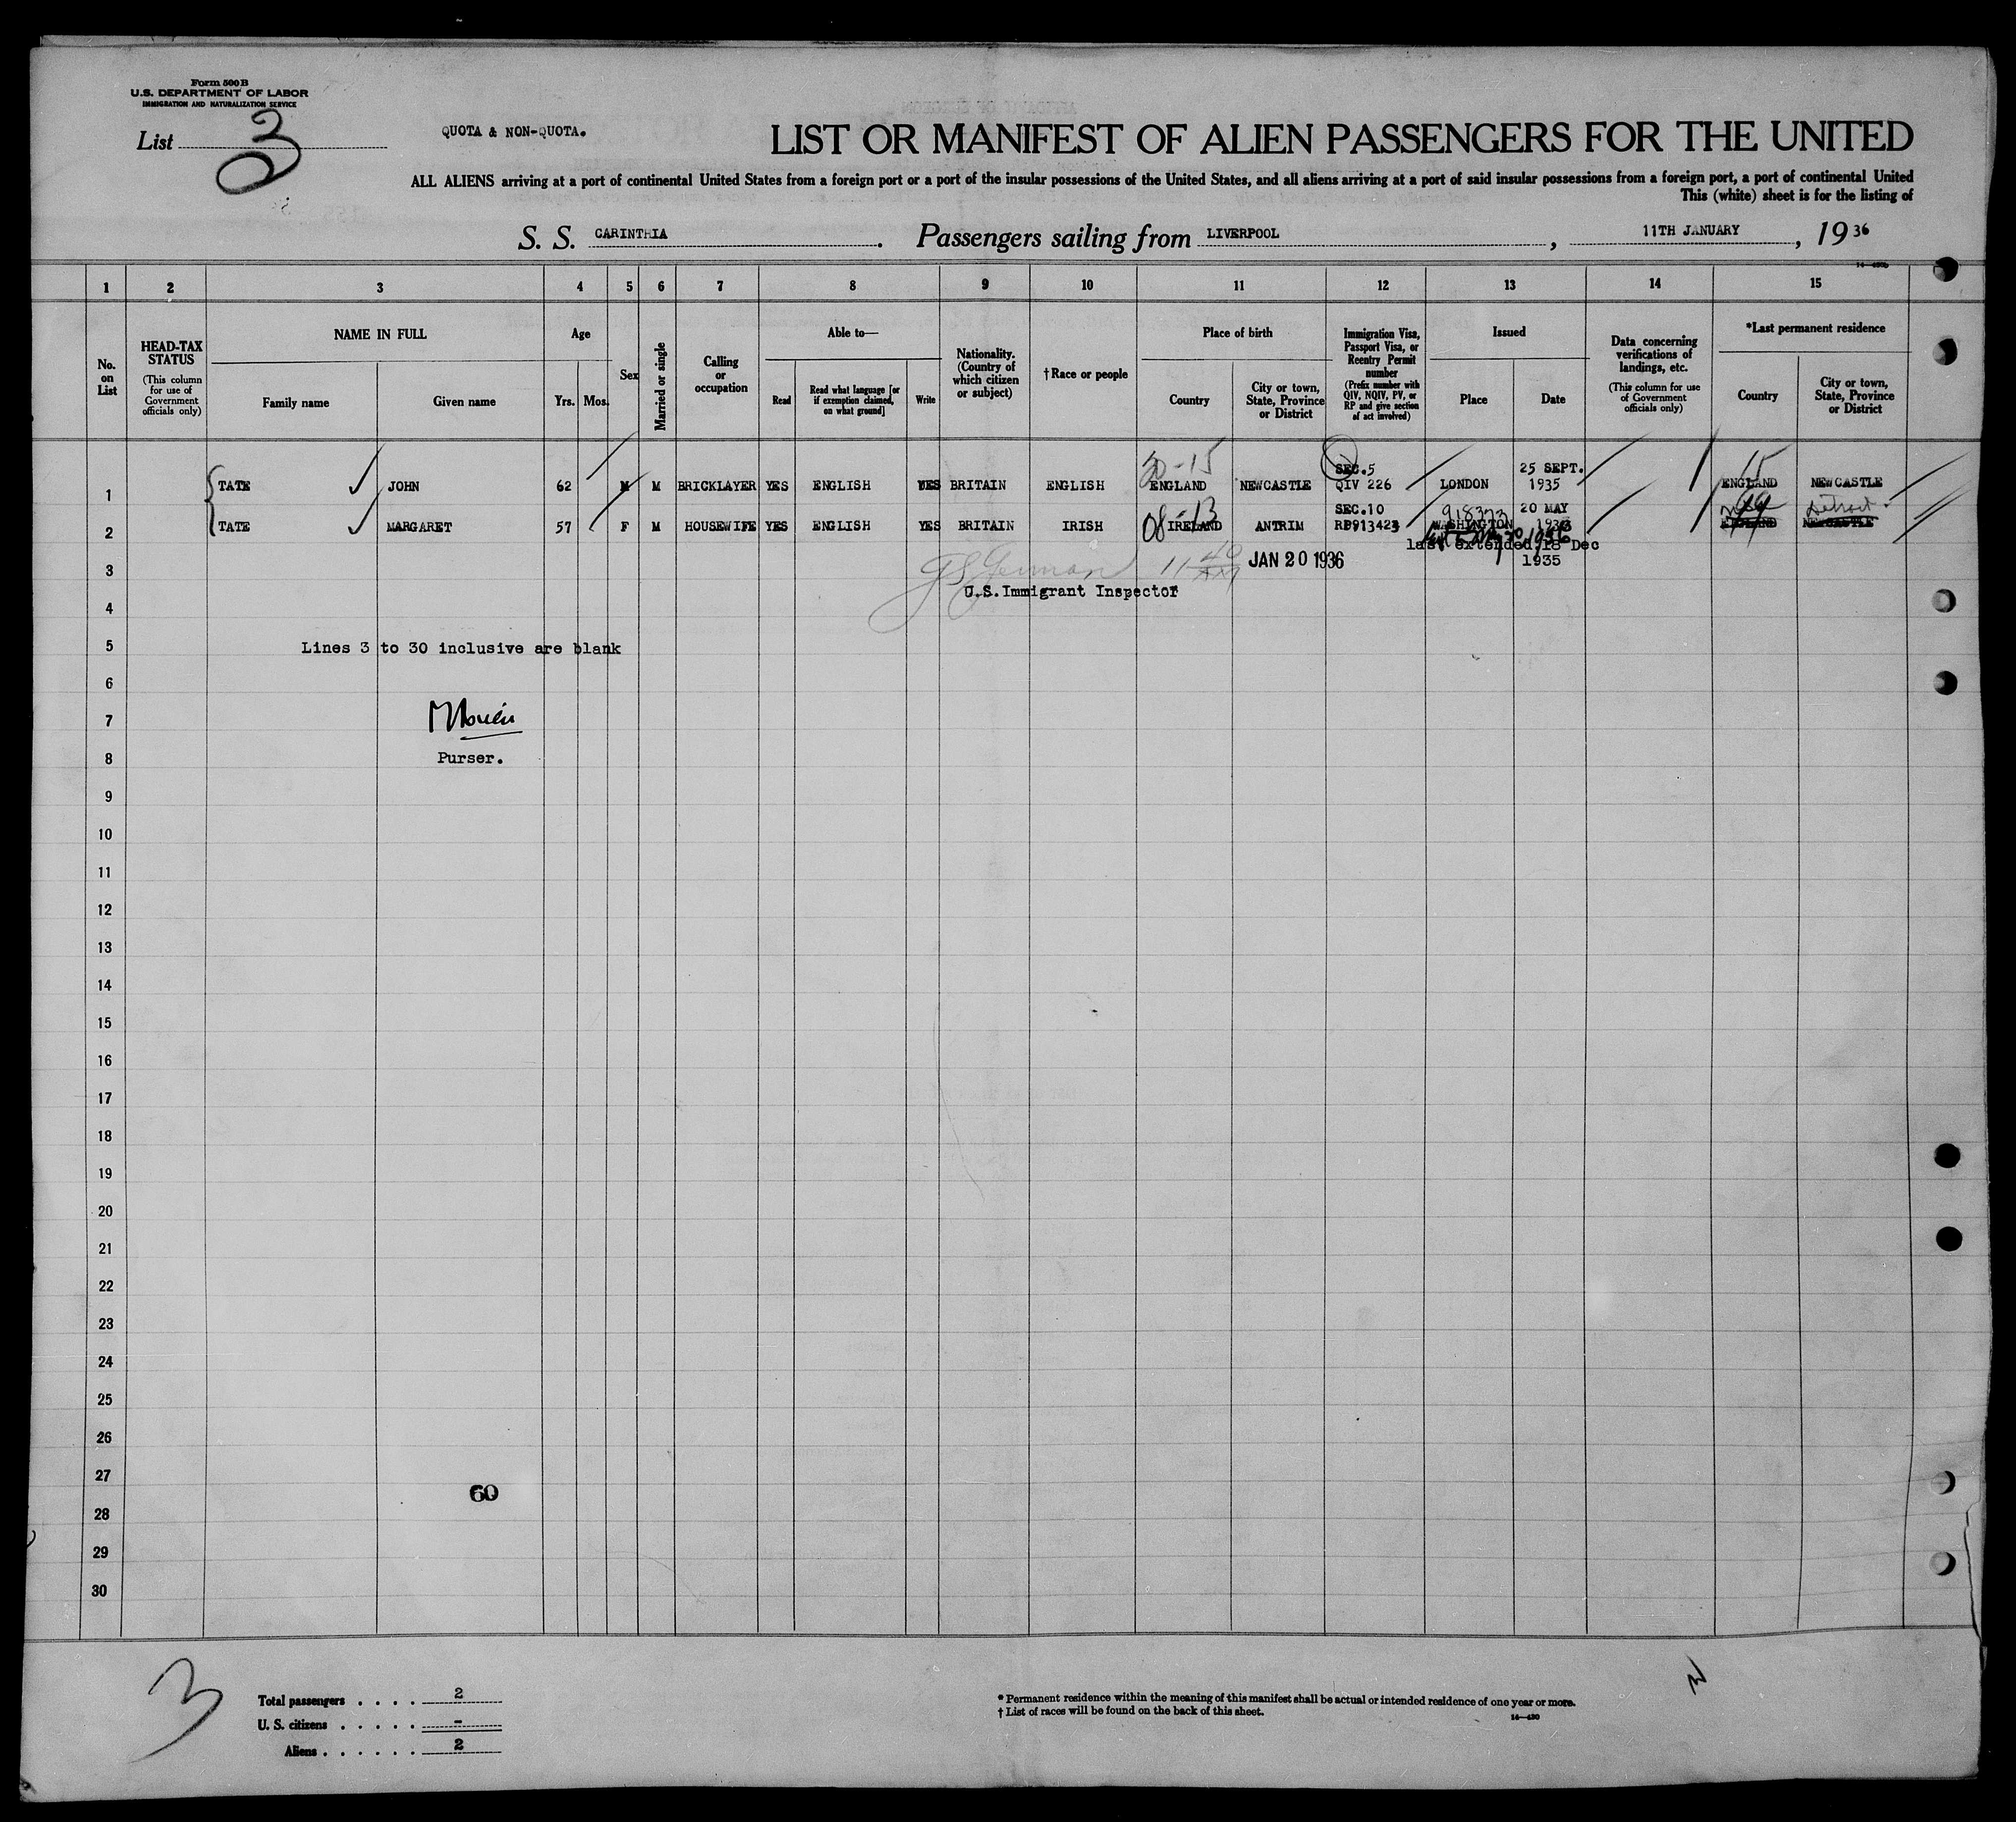 Form 500 B
U.S. DEPARTMENT OF LABOR
IMMIGRATION AND NATURALIZATION SERVICE
List 3
QUOTA & NON-QUOTA.
LIST OR MANIFEST OF ALIEN PASSENGERS FOR THE UNITED
ALL ALIENS arriving at a port of continental United States from a foreign port or a port of the insular possessions of the United States, and all aliens arriving at a port of said insular possessions from a foreign port, a port of continental United
This (white) sheet is for the listing of
S. S. CARINTHIA. Passengers sailing from LIVERPOOL, 11TH JANUARY, 1936
1 2 3 4 5 6 7 8 9 10 11 12 13 14 15
No. on List
HEAD-TAX STATUS
(This column for use of Government officials only)
NAME IN FULL
Family name
Given name
Age
Yrs. Mos.
Sex
Married or single
Calling or occupation
Able to—
Read
Read what language [or if exemption claimed, on what ground]
Write
Nationality. (Country of which citizen or subject)
†Race or people
Place of birth
Country
City or town, State, Province or District
Immigration Visa, Passport Visa, or Reentry Permit number
(Prefix number with QIV, NQIV, PV, or RP and give section of act involved)
Issued
Place
Date
Data concerning verifications of landings, etc.
(This column for use of Government officials only)
*Last permanent residence
Country
City or town, State, Province or District
-15 SEC.5 25 SEPT. 15
1 TATE JOHN 62 M M BRICKLAYER YES ENGLISH YES BRITAIN ENGLISH ENGLAND NEWCASTLE QIV 226 LONDON 1935 ENGLAND NEWCASTLE
08-13 SEC.10 918373 20 MAY Detroit
2 TATE MARGARET 57 F M HOUSEWIFE YES ENGLISH YES BRITAIN IRISH IRELAND ANTRIM RP913423 WASHINGTON ENGLAND NEWCASTLE
last extended 18 Dec
1935
3 11 40 AM JAN 20 1936
U.S.Immigrant Inspector
4
5 Lines 3 to 30 inclusive are blank
6
7
8 Purser.
9
10
11
12
13
14
15
16
17
18
19
20
21
22
23
24
25
26
27
60
28
29
30
3
Total passengers . . . . 2
U. S. citizens . . . . . -
Aliens . . . . . . 2
* Permanent residence within the meaning of this manifest shall be actual or intended residence of one year or more.
† List of races will be found on the back of this sheet.
14—430